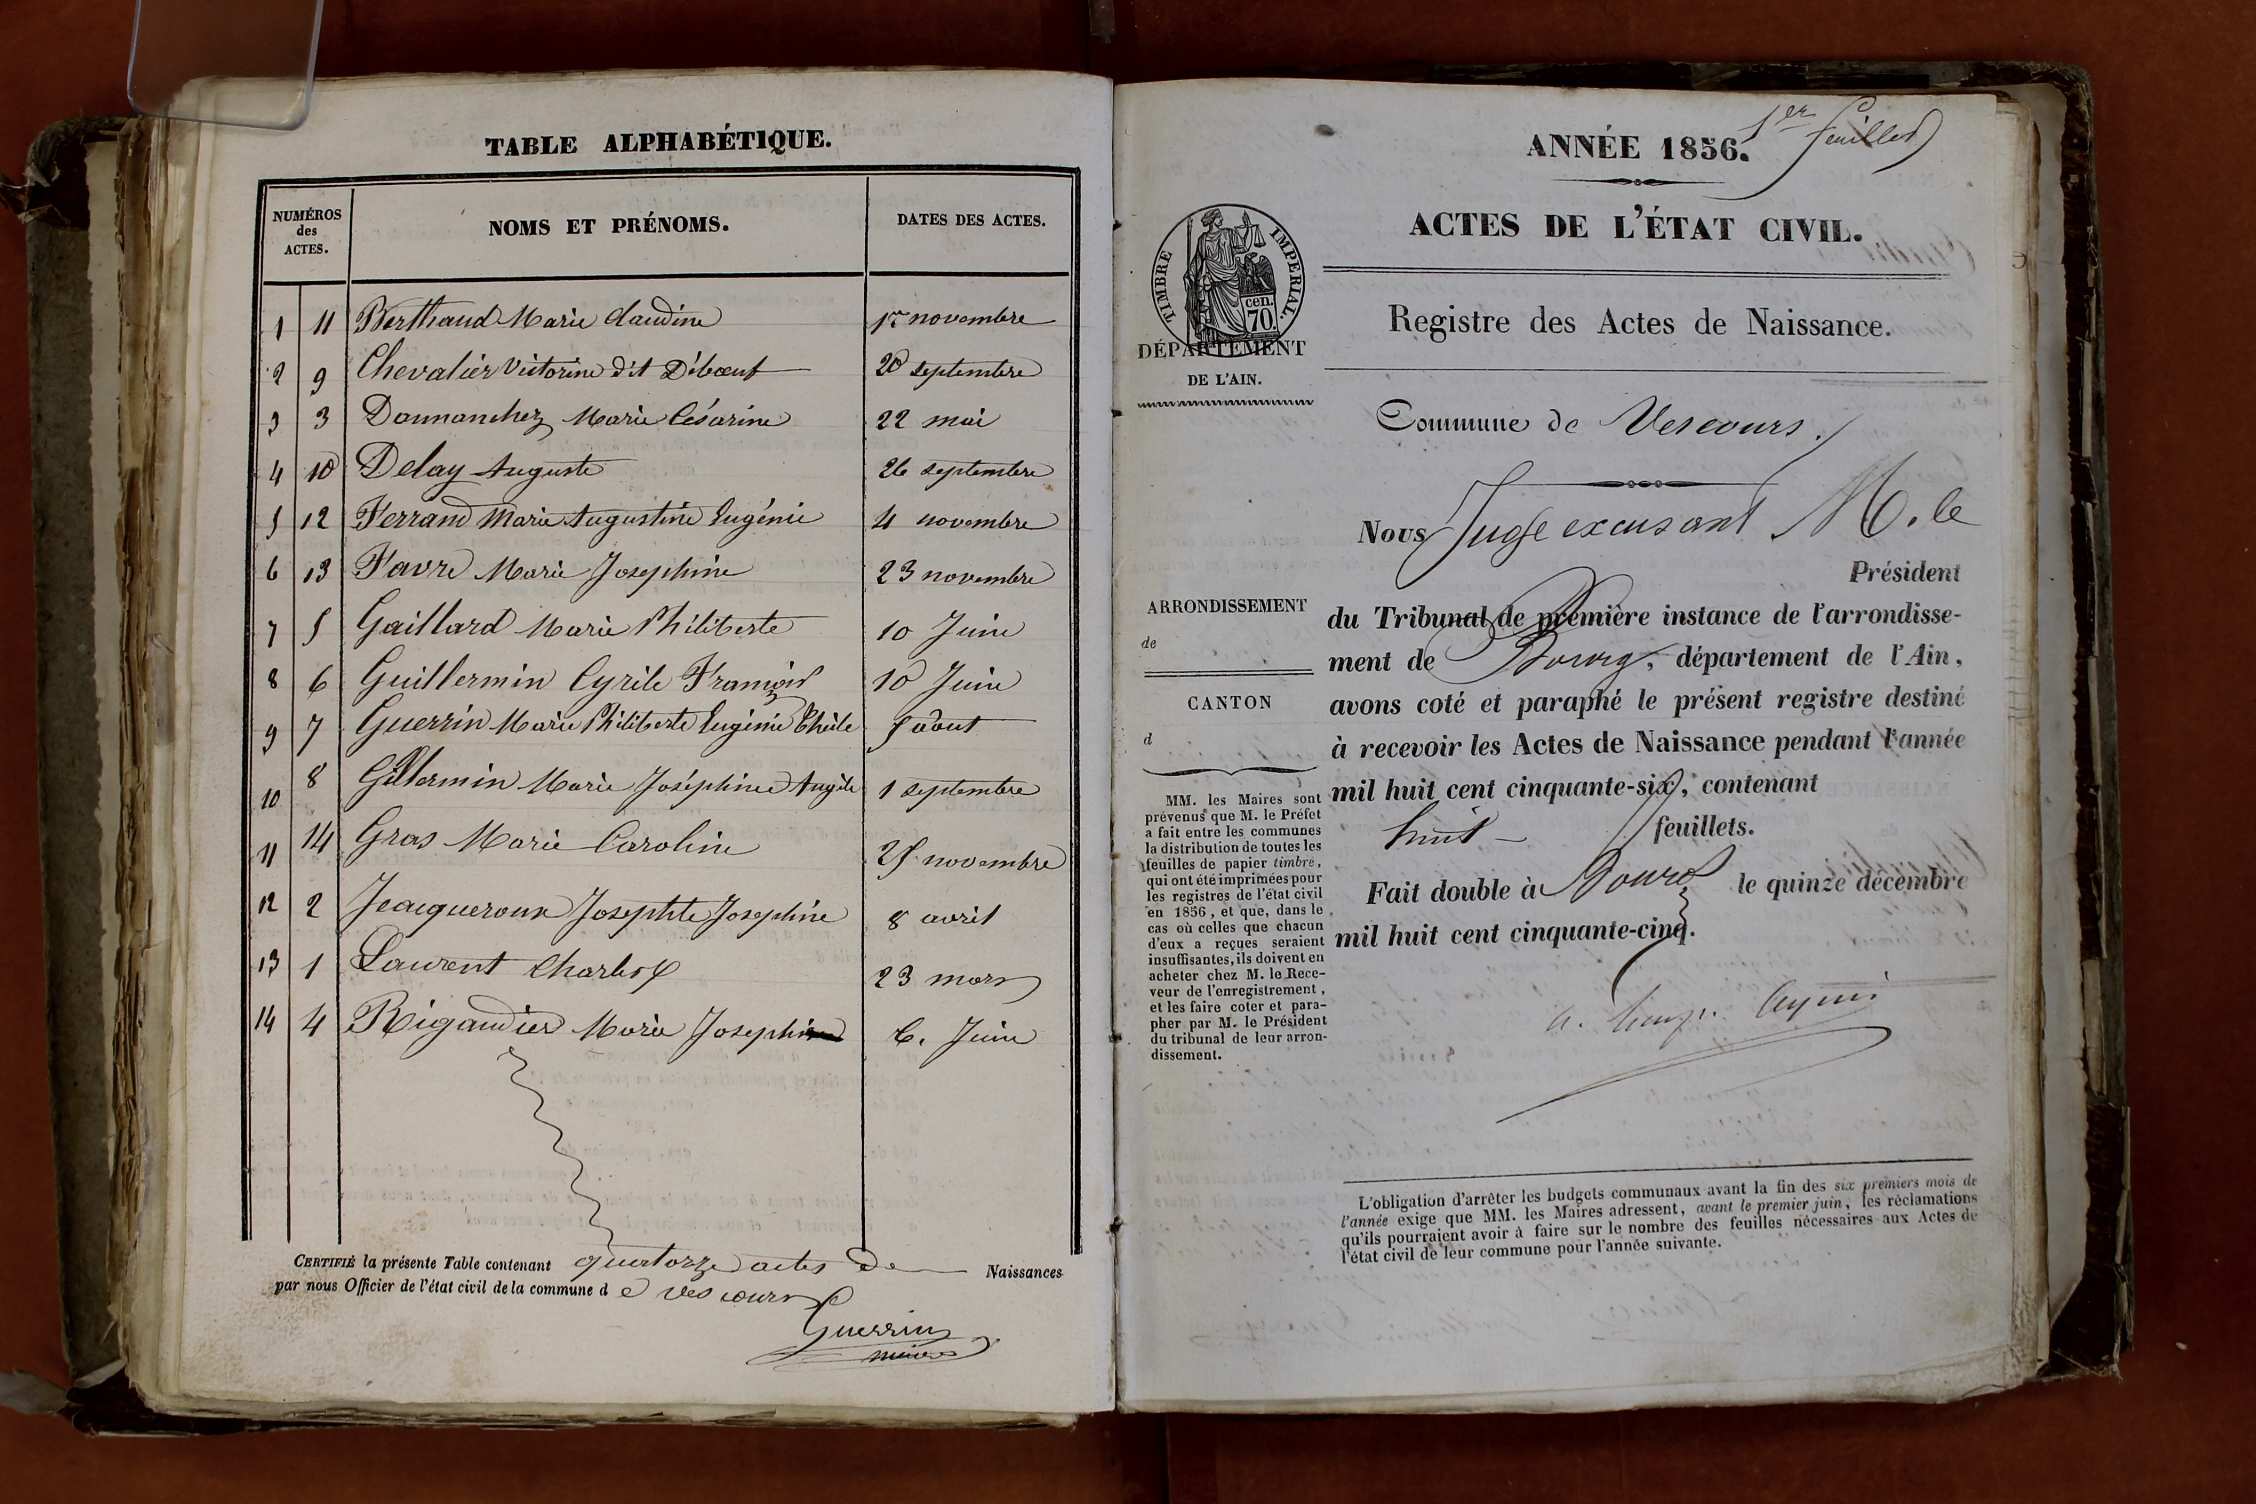 TABLE ALPHABÉTIQUE.
NUMÉROS des ACTES. NOMS ET PRÉNOMS. DATES DES ACTES.
1 11 Berthaud Marie Claudine 1er novembre
2 9 Chevalier Victorine dit Débœuf 20 septembre
3 3 Dannanchez Marie Césarine 22 mai
4 10 Delay Auguste 26 septembre
5 12 Ferrand Marie Augustine Eugénie 4 novembre
6 13 Favre Marie Josephine 23 novembre
7 5 Gaillard Marie Philiberte 10 Juin
8 6 Guillermin Cyrile François 10 Juin
9 7 Guerrin Marie Philiberte Eugénie 5 aout
10 8 Gillermin Marie Joséphine Angèle 1 septembre
11 14 Gras Marie Caroline 25 novembre
12 2 Jeacqueroux Josephte Josephine 8 avril
13 1 Laurent Charles 23 mars
14 4 Rigaudier Marie Josephine 6. Juin
CERTIFIÉ la présente Table contenant quatorze actes de Naissances
par nous Officier de l'état civil de la commune d e Vescours
Guerrin
maire
1er feuillet
ANNÉE 1856.
ACTES DE L'ÉTAT CIVIL.
TIMBRE IMPERIAL.
70 cen.
Registre des Actes de Naissance.
DÉPARTEMENT
DE L'AIN.
Commune de Vescours.
Nous Juge excusant M. le
Président
ARRONDISSEMENT
de
CANTON
d
du Tribunal de première instance de l'arrondisse-
ment de Bourg, département de l'Ain,
avons coté et paraphé le présent registre destiné
à recevoir les Actes de Naissance pendant l'année
mil huit cent cinquante-six, contenant
huit feuillets.
Fait double à Bourg le quinze décembre
mil huit cent cinquante-cinq.
MM. les Maires sont
prévenus que M. le Préfet
a fait entre les communes
la distribution de toutes les
feuilles de papier timbré,
qui ont été imprimées pour
les registres de l'état civil
en 1856, et que, dans le
cas où celles que chacun
d'eux a reçues seraient
insuffisantes, ils doivent en
acheter chez M. le Rece-
veur de l'enregistrement,
et les faire coter et para-
pher par M. le Président
du tribunal de leur arron-
dissement.
L'obligation d'arrêter les budgets communaux avant la fin des six premiers mois de
l'année exige que MM. les Maires adressent, avant le premier juin, les réclamations
qu'ils pourraient avoir à faire sur le nombre des feuilles nécessaires aux Actes de
l'état civil de leur commune pour l'année suivante.